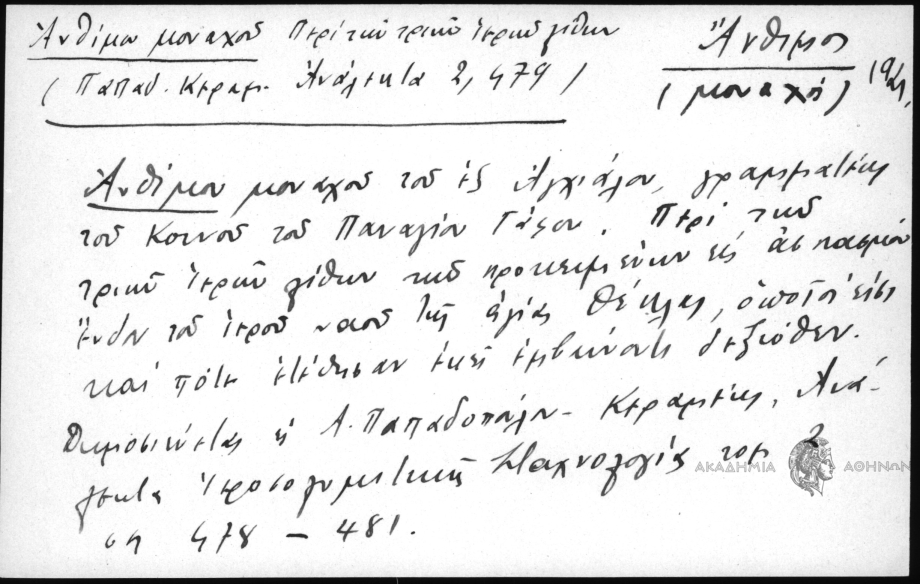 Ἀνθίμου μοναχοῦ Περὶ τῶν τριῶν ἱερῶν λίθων
(Παπαδ. Κεραμ. Ἀνάλεκτα 2, 479)
Ἄνθιμος
(μοναχός)
Ἀνθίμου μοναχοῦ τοῦ ἐξ Ἀγχιάλου, γραμματέως
τοῦ Κοινοῦ τοῦ Παναγίου Τάφου. Περὶ τῶν
τριῶν ἱερῶν λίθων τῶν προκειμένων εἰς ἀσπασμὸν
ἔνδον τοῦ ἱεροῦ ναοῦ τῆς ἁγίας Θέκλας, ὁποῖοί εἰσι
καὶ πότε ἐτέθησαν ἐκεῖ ἐμβαίνοντι δεξιόθεν.
Δημοσιεύεται ὑ Α. Παπαδοπούλου-Κεραμέως, Ἀνά-
λεκτα Ἱεροσολυμιτικῆς Σταχυολογίας τομ 2
σσ 478 – 481.
ΑΚΑΔΗΜΙΑ ΑΘΗΝΩΝ